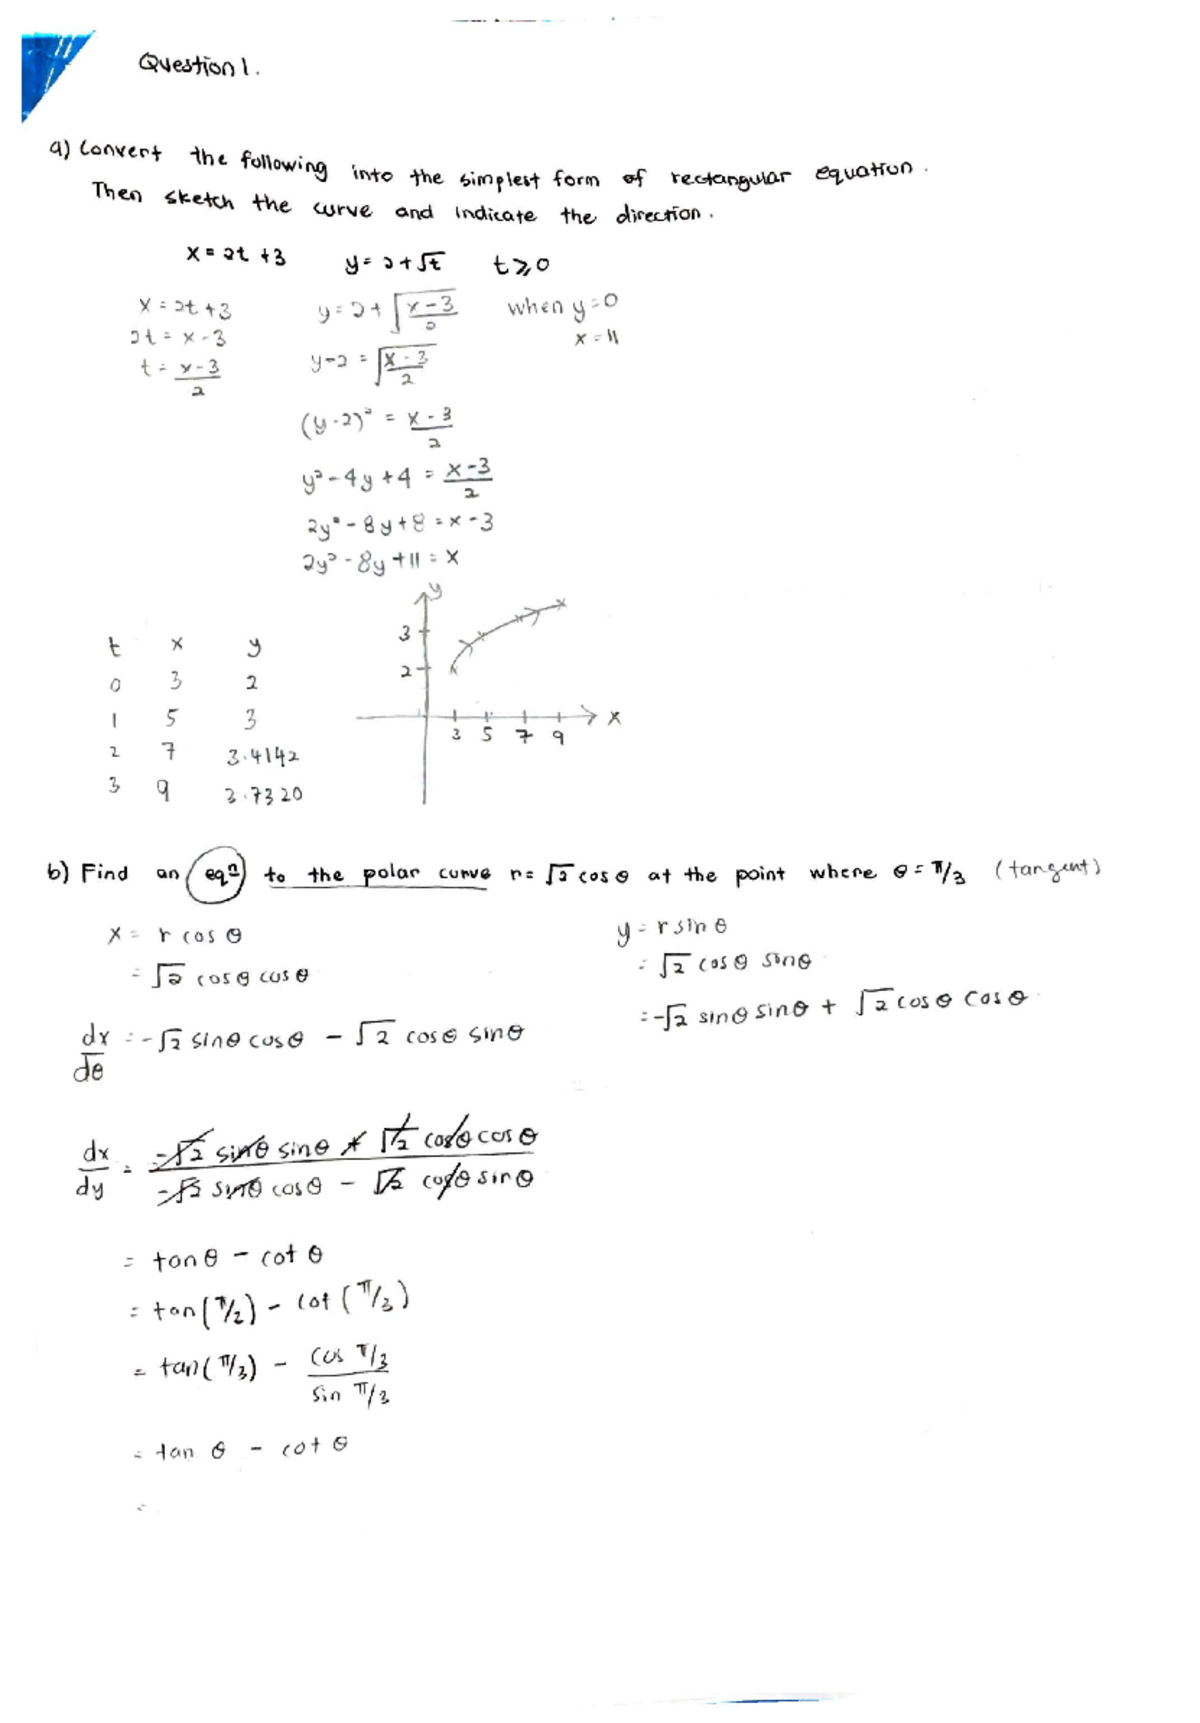 Question 1.
a) Convert the following into the simplest form of rectangular equation.
Then sketch the curve and indicate the direction.
x = 2t + 3 y = 2 + √t t ≥ 0
x = 2t + 3 y = 2 + √((x-3)/2) when y = 0
2t = x - 3 y - 2 = √((x-3)/2) x = 11
t = (x-3)/2
(y-2)² = (x-3)/2
y² - 4y + 4 = (x-3)/2
2y² - 8y + 8 = x - 3
2y² - 8y + 11 = x
y
3
2
3 5 7 9 x
t x y
0 3 2
1 5 3
2 7 3.4142
3 9 3.7320
b) Find an eqn to the polar curve r = √2 cos θ at the point where θ = π/3 (tangent)
x = r cos θ y = r sin θ
= √2 cos θ cos θ = √2 cos θ sin θ
dx/dθ = -√2 sin θ cos θ - √2 cos θ sin θ = -√2 sin θ sin θ + √2 cos θ cos θ
dx/dy = (-√2 sin θ sin θ + √2 cos θ cos θ)/(-√2 sin θ cos θ - √2 cos θ sin θ)
= tan θ - cot θ
= tan(π/2) - cot(π/3)
= tan(π/3) - (cos π/3)/(sin π/3)
= tan θ - cot θ
=